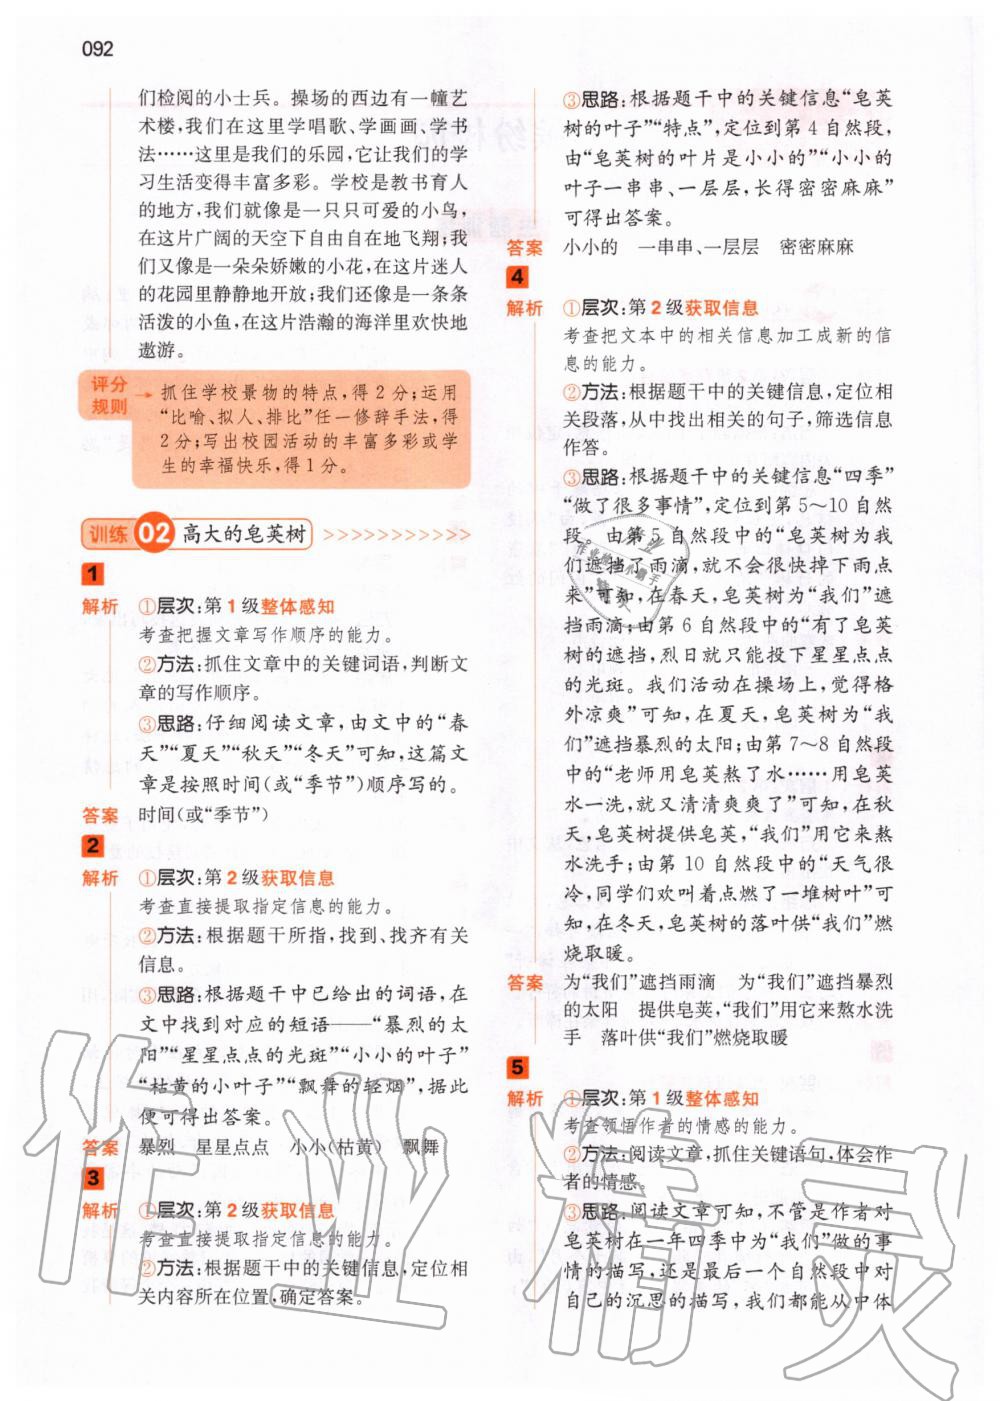 092
们检阅的小士兵。操场的西边有一幢艺
术楼,我们在这里学唱歌、学画画、学书
法……这里是我们的乐园,它让我们的学
习生活变得丰富多彩。学校是教书育人
的地方,我们就像是一只只可爱的小鸟,
在这片广阔的天空下自由自在地飞翔;我
们又像是一朵朵娇嫩的小花,在这片迷人
的花园里静静地开放;我们还像是一条条
活泼的小鱼,在这片浩瀚的海洋里欢快地
遨游。
评分规则 → 抓住学校景物的特点,得2分;运用
“比喻、拟人、排比”任一修辞手法,得
2分;写出校园活动的丰富多彩或学
生的幸福快乐,得1分。
训练 02 高大的皂荚树 >>>>>>>>>>>
1
解析 ①层次:第1级整体感知
考查把握文章写作顺序的能力。
②方法:抓住文章中的关键词语,判断文
章的写作顺序。
③思路:仔细阅读文章,由文中的“春
天”“夏天”“秋天”“冬天”可知,这篇文
章是按照时间(或“季节”)顺序写的。
答案 时间(或“季节”)
2
解析 ①层次:第2级获取信息
考查直接提取指定信息的能力。
②方法:根据题干所指,找到、找齐有关
信息。
③思路:根据题干中已给出的词语,在
文中找到对应的短语——“暴烈的太
阳”“星星点点的光斑”“小小的叶子”
“枯黄的小叶子”“飘舞的轻烟”,据此
便可得出答案。
答案 暴烈 星星点点 小小(枯黄) 飘舞
3
解析 ①层次:第2级获取信息
考查直接提取指定信息的能力。
②方法:根据题干中的关键信息,定位相
关内容所在位置,确定答案。
③思路:根据题干中的关键信息“皂荚
树的叶子”“特点”,定位到第4自然段,
由“皂荚树的叶片是小小的”“小小的
叶子一串串、一层层,长得密密麻麻”
可得出答案。
答案 小小的 一串串、一层层 密密麻麻
4
解析 ①层次:第2级获取信息
考查把文本中的相关信息加工成新的信
息的能力。
②方法:根据题干中的关键信息,定位相
关段落,从中找出相关的句子,筛选信息
作答。
③思路:根据题干中的关键信息“四季”
“做了很多事情”,定位到第5~10自然
段。由第5自然段中的“皂荚树为我
们遮挡了雨滴,就不会很快掉下雨点
来”可知,在春天,皂荚树为“我们”遮
挡雨滴;由第6自然段中的“有了皂荚
树的遮挡,烈日就只能投下星星点点
的光斑。我们活动在操场上,觉得格
外凉爽”可知,在夏天,皂荚树为“我
们”遮挡暴烈的太阳;由第7~8自然段
中的“老师用皂荚熬了水……用皂荚
水一洗,就又清清爽爽了”可知,在秋
天,皂荚树提供皂荚,“我们”用它来熬
水洗手;由第10自然段中的“天气很
冷,同学们欢叫着点燃了一堆树叶”可
知,在冬天,皂荚树的落叶供“我们”燃
烧取暖。
答案 为“我们”遮挡雨滴 为“我们”遮挡暴烈
的太阳 提供皂荚,“我们”用它来熬水洗
手 落叶供“我们”燃烧取暖
5
解析 ①层次:第1级整体感知
考查领悟作者的情感的能力。
②方法:阅读文章,抓住关键语句,体会作
者的情感。
③思路:阅读文章可知,不管是作者对
皂荚树在一年四季中为“我们”做的事
情的描写,还是最后一个自然段中对
自己的沉思的描写,我们都能从中体
作业精灵